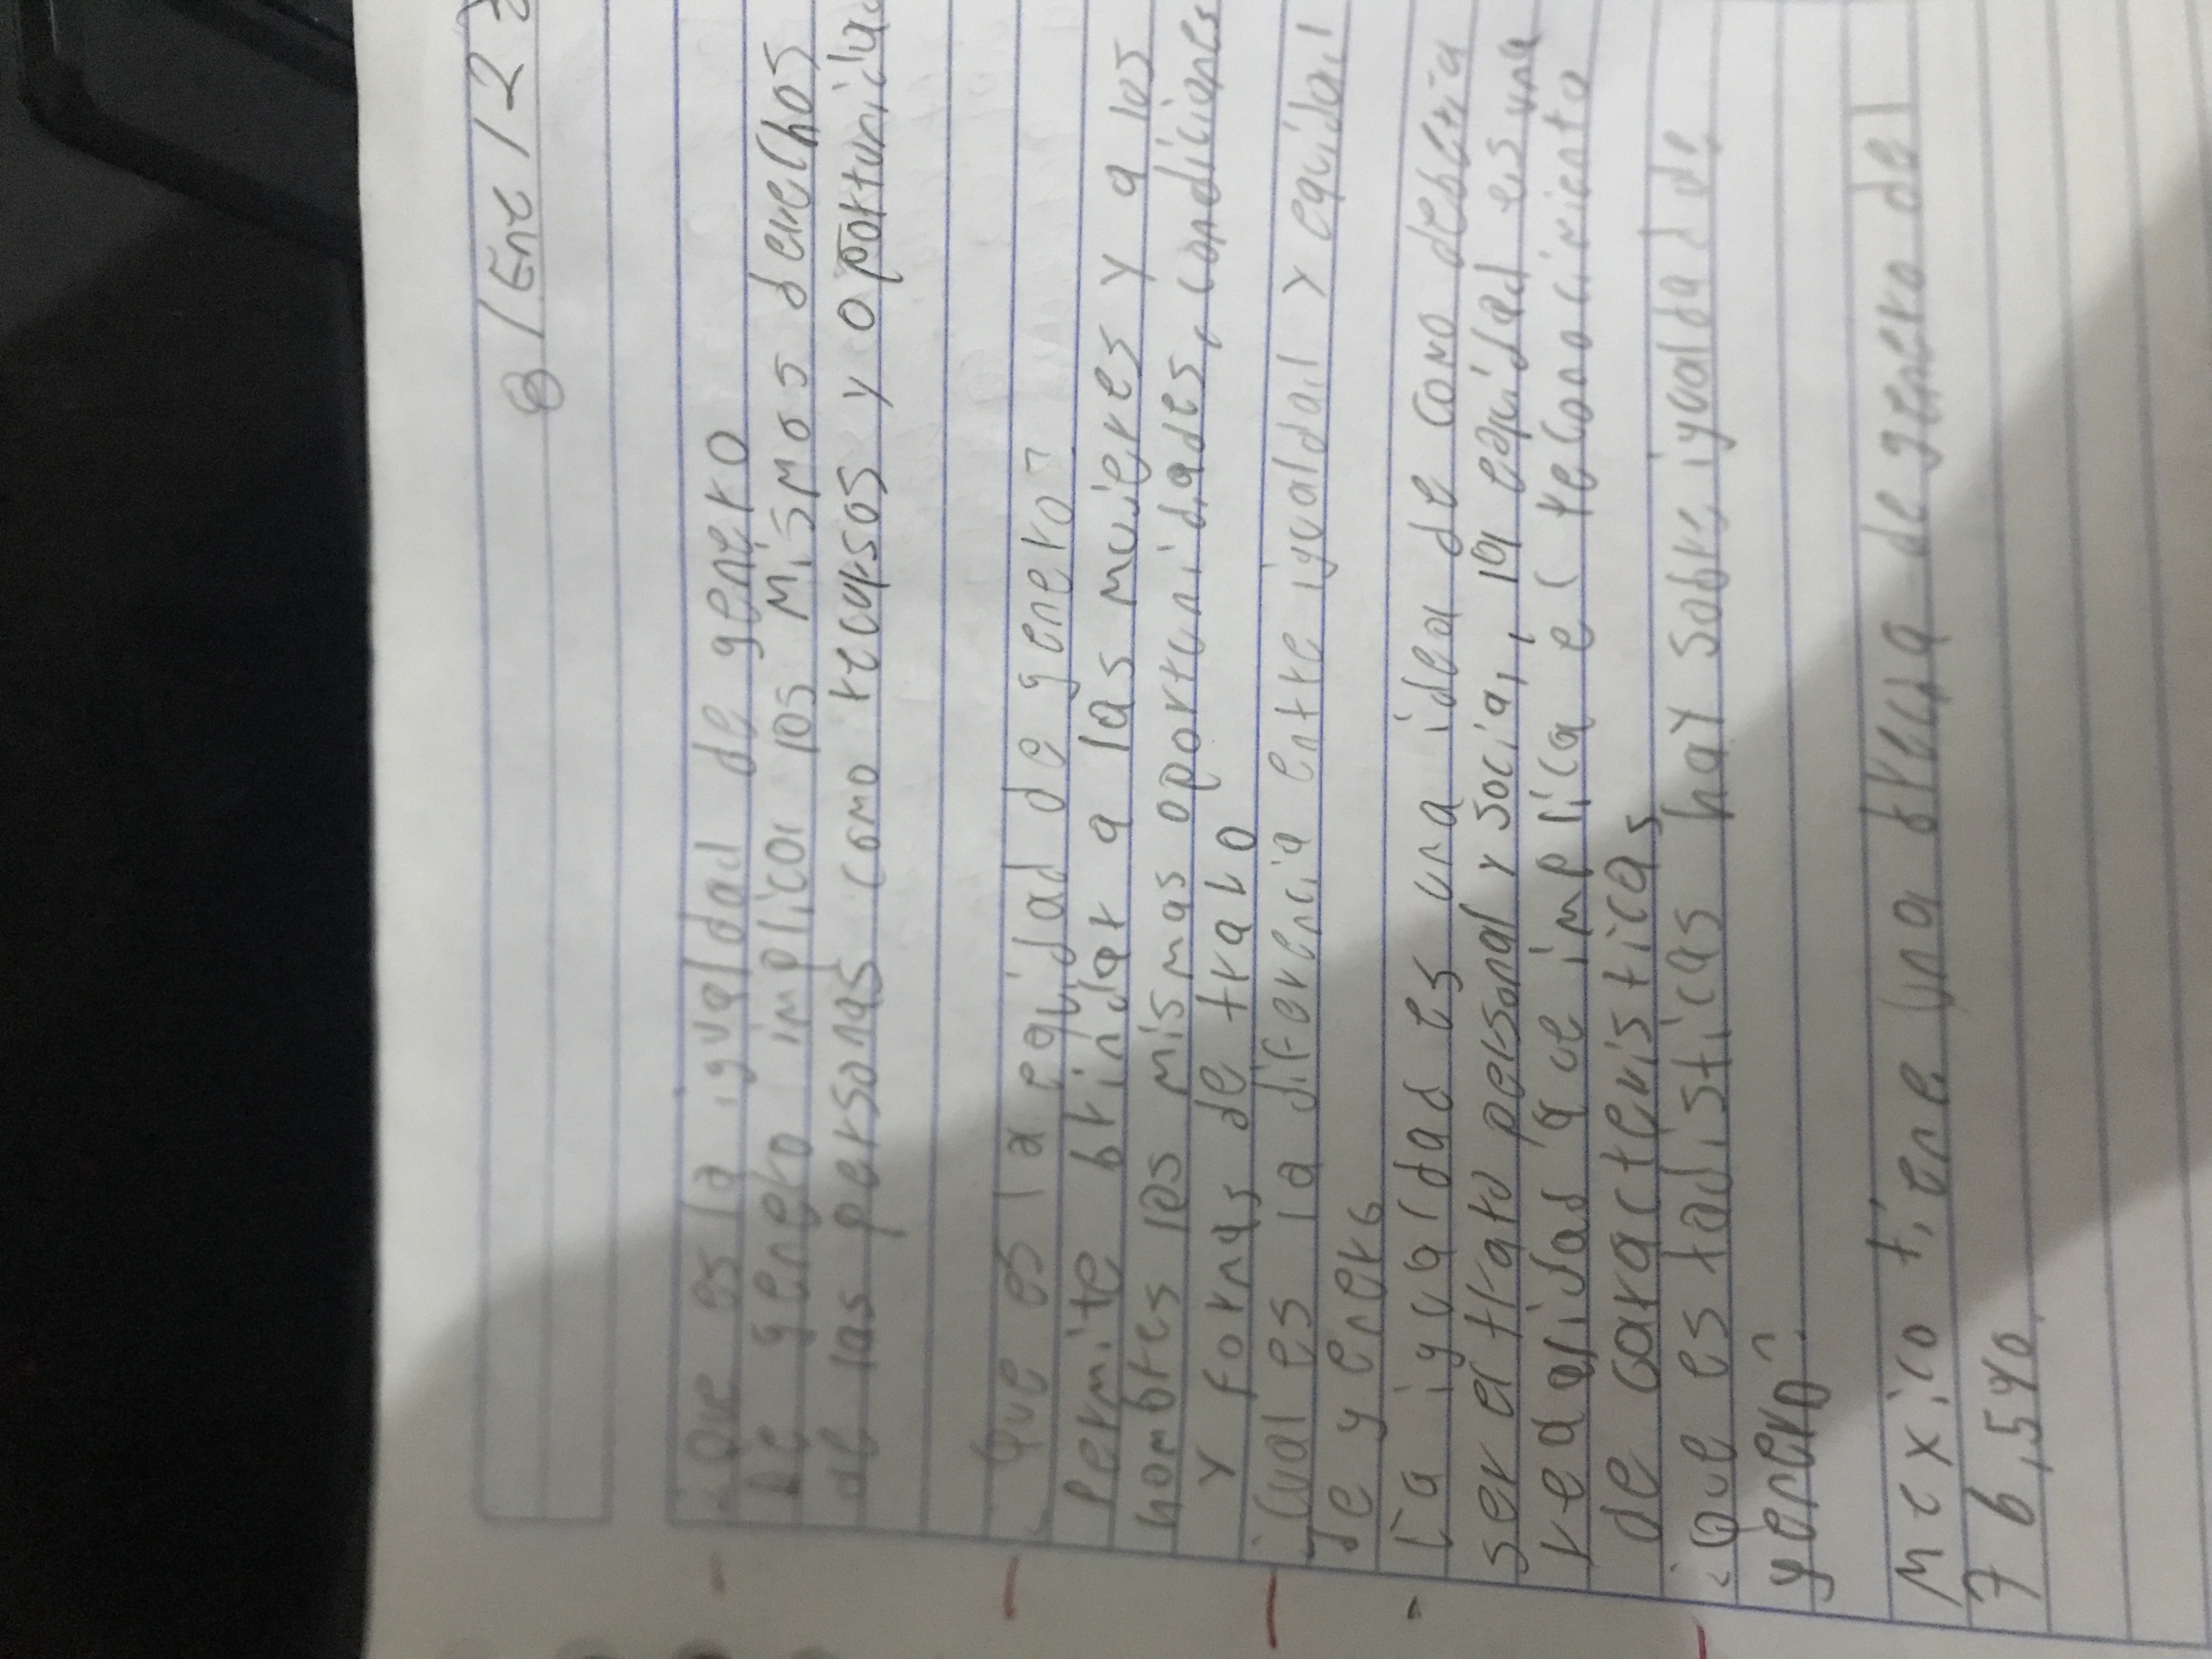 8/Ene/2
¿Que es la igualdad de genero
De genero implica los mismos derechos
de las personas como recursos y oportunida
¿Que es la equidad de genero?
Permite brindar a las mujeres y a los
hombres las mismas oportunidades, condiciones
y formas de trato
¿Cual es la diferencia entre igualdad y equidad
de genero
La igualdad es una idea de como deberia
ser el trato personal y social, la equidad es una
realidad que implica el reconocimiento
de caracteristicas
¿Que estadisticas hay sobre igualdad de
genero?
Mexico tiene una brecha de genero del
76,5%